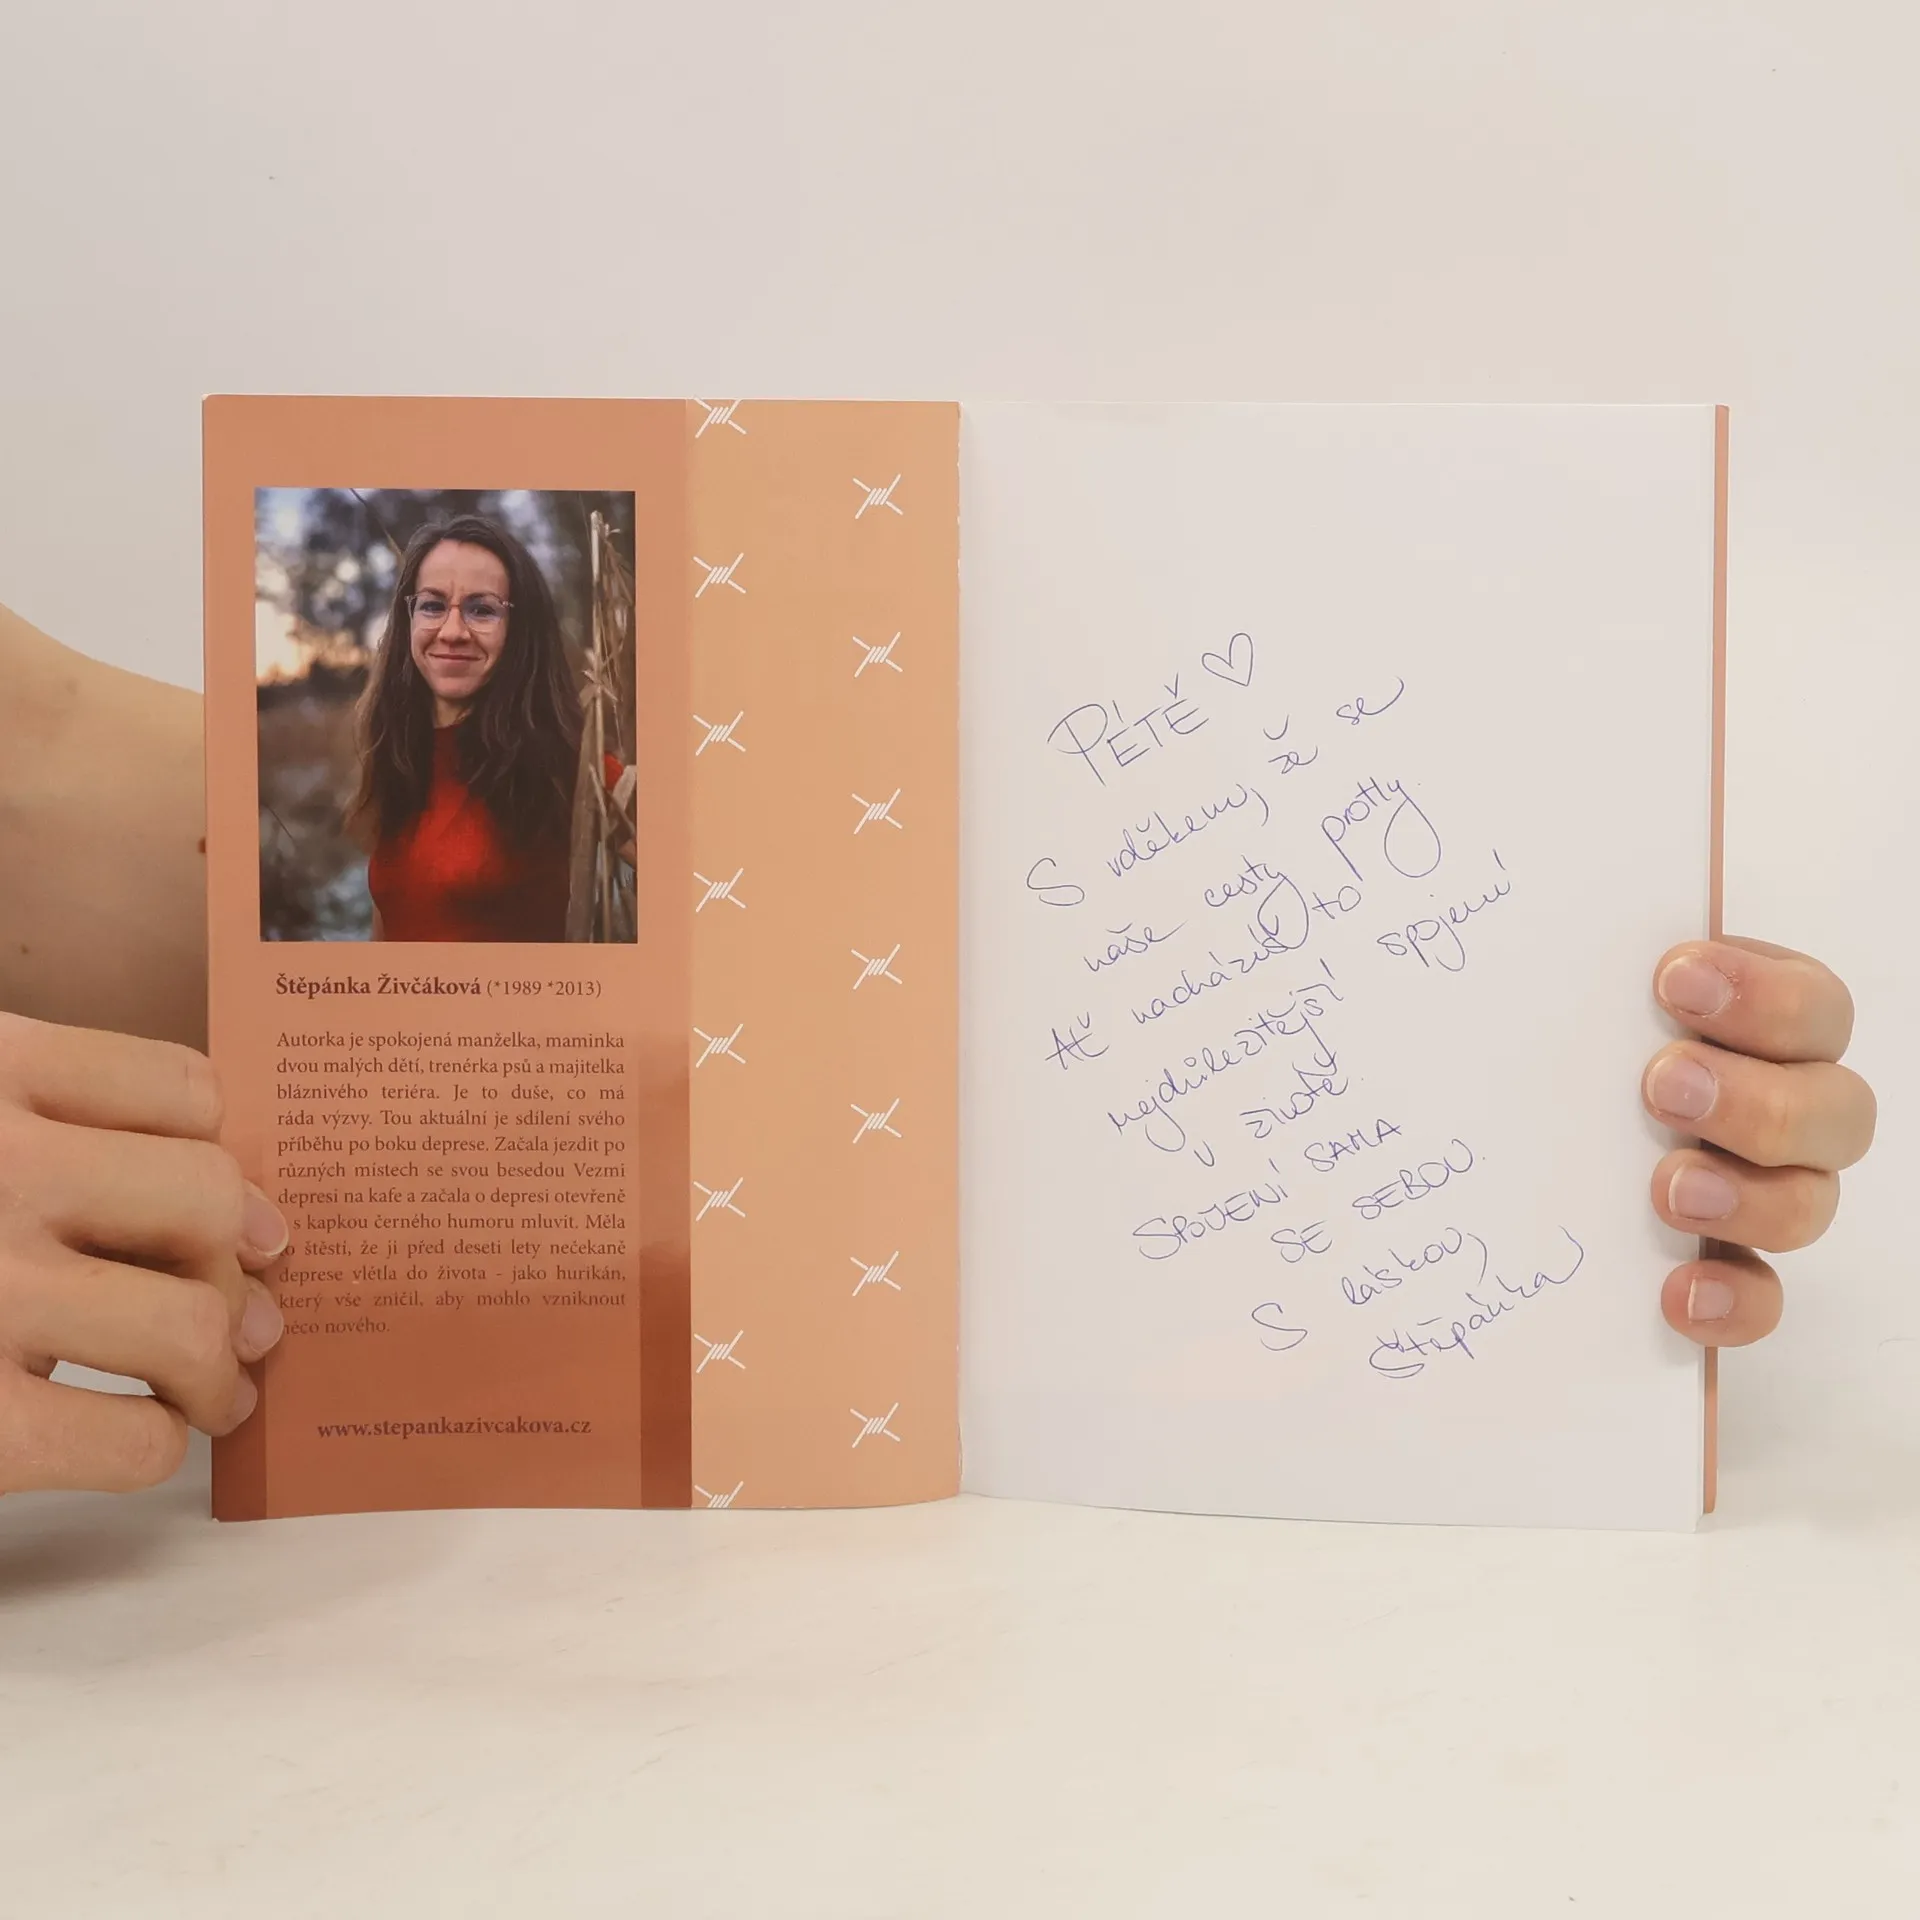 Štěpánka Živčáková (*1989 *2013)
Autorka je spokojená manželka, maminka
dvou malých dětí, trenérka psů a majitelka
bláznivého teriéra. Je to duše, co má
ráda výzvy. Tou aktuální je sdílení svého
příběhu po boku deprese. Začala jezdit po
různých místech se svou besedou Vezmi
depresi na kafe a začala o depresi otevřeně
s kapkou černého humoru mluvit. Měla
to štěstí, že ji před deseti lety nečekaně
deprese vlétla do života - jako hurikán,
který vše zničil, aby mohlo vzniknout
něco nového.
www.stepankazivcakova.cz
PÉTĚ ♡
S vděkem, že se
naše cesty protly.
Ať nacházíš to
nejdůležitější spojení
v životě.
SPOJENÍ SAMA
SE SEBOU.
S láskou,
Štěpánka